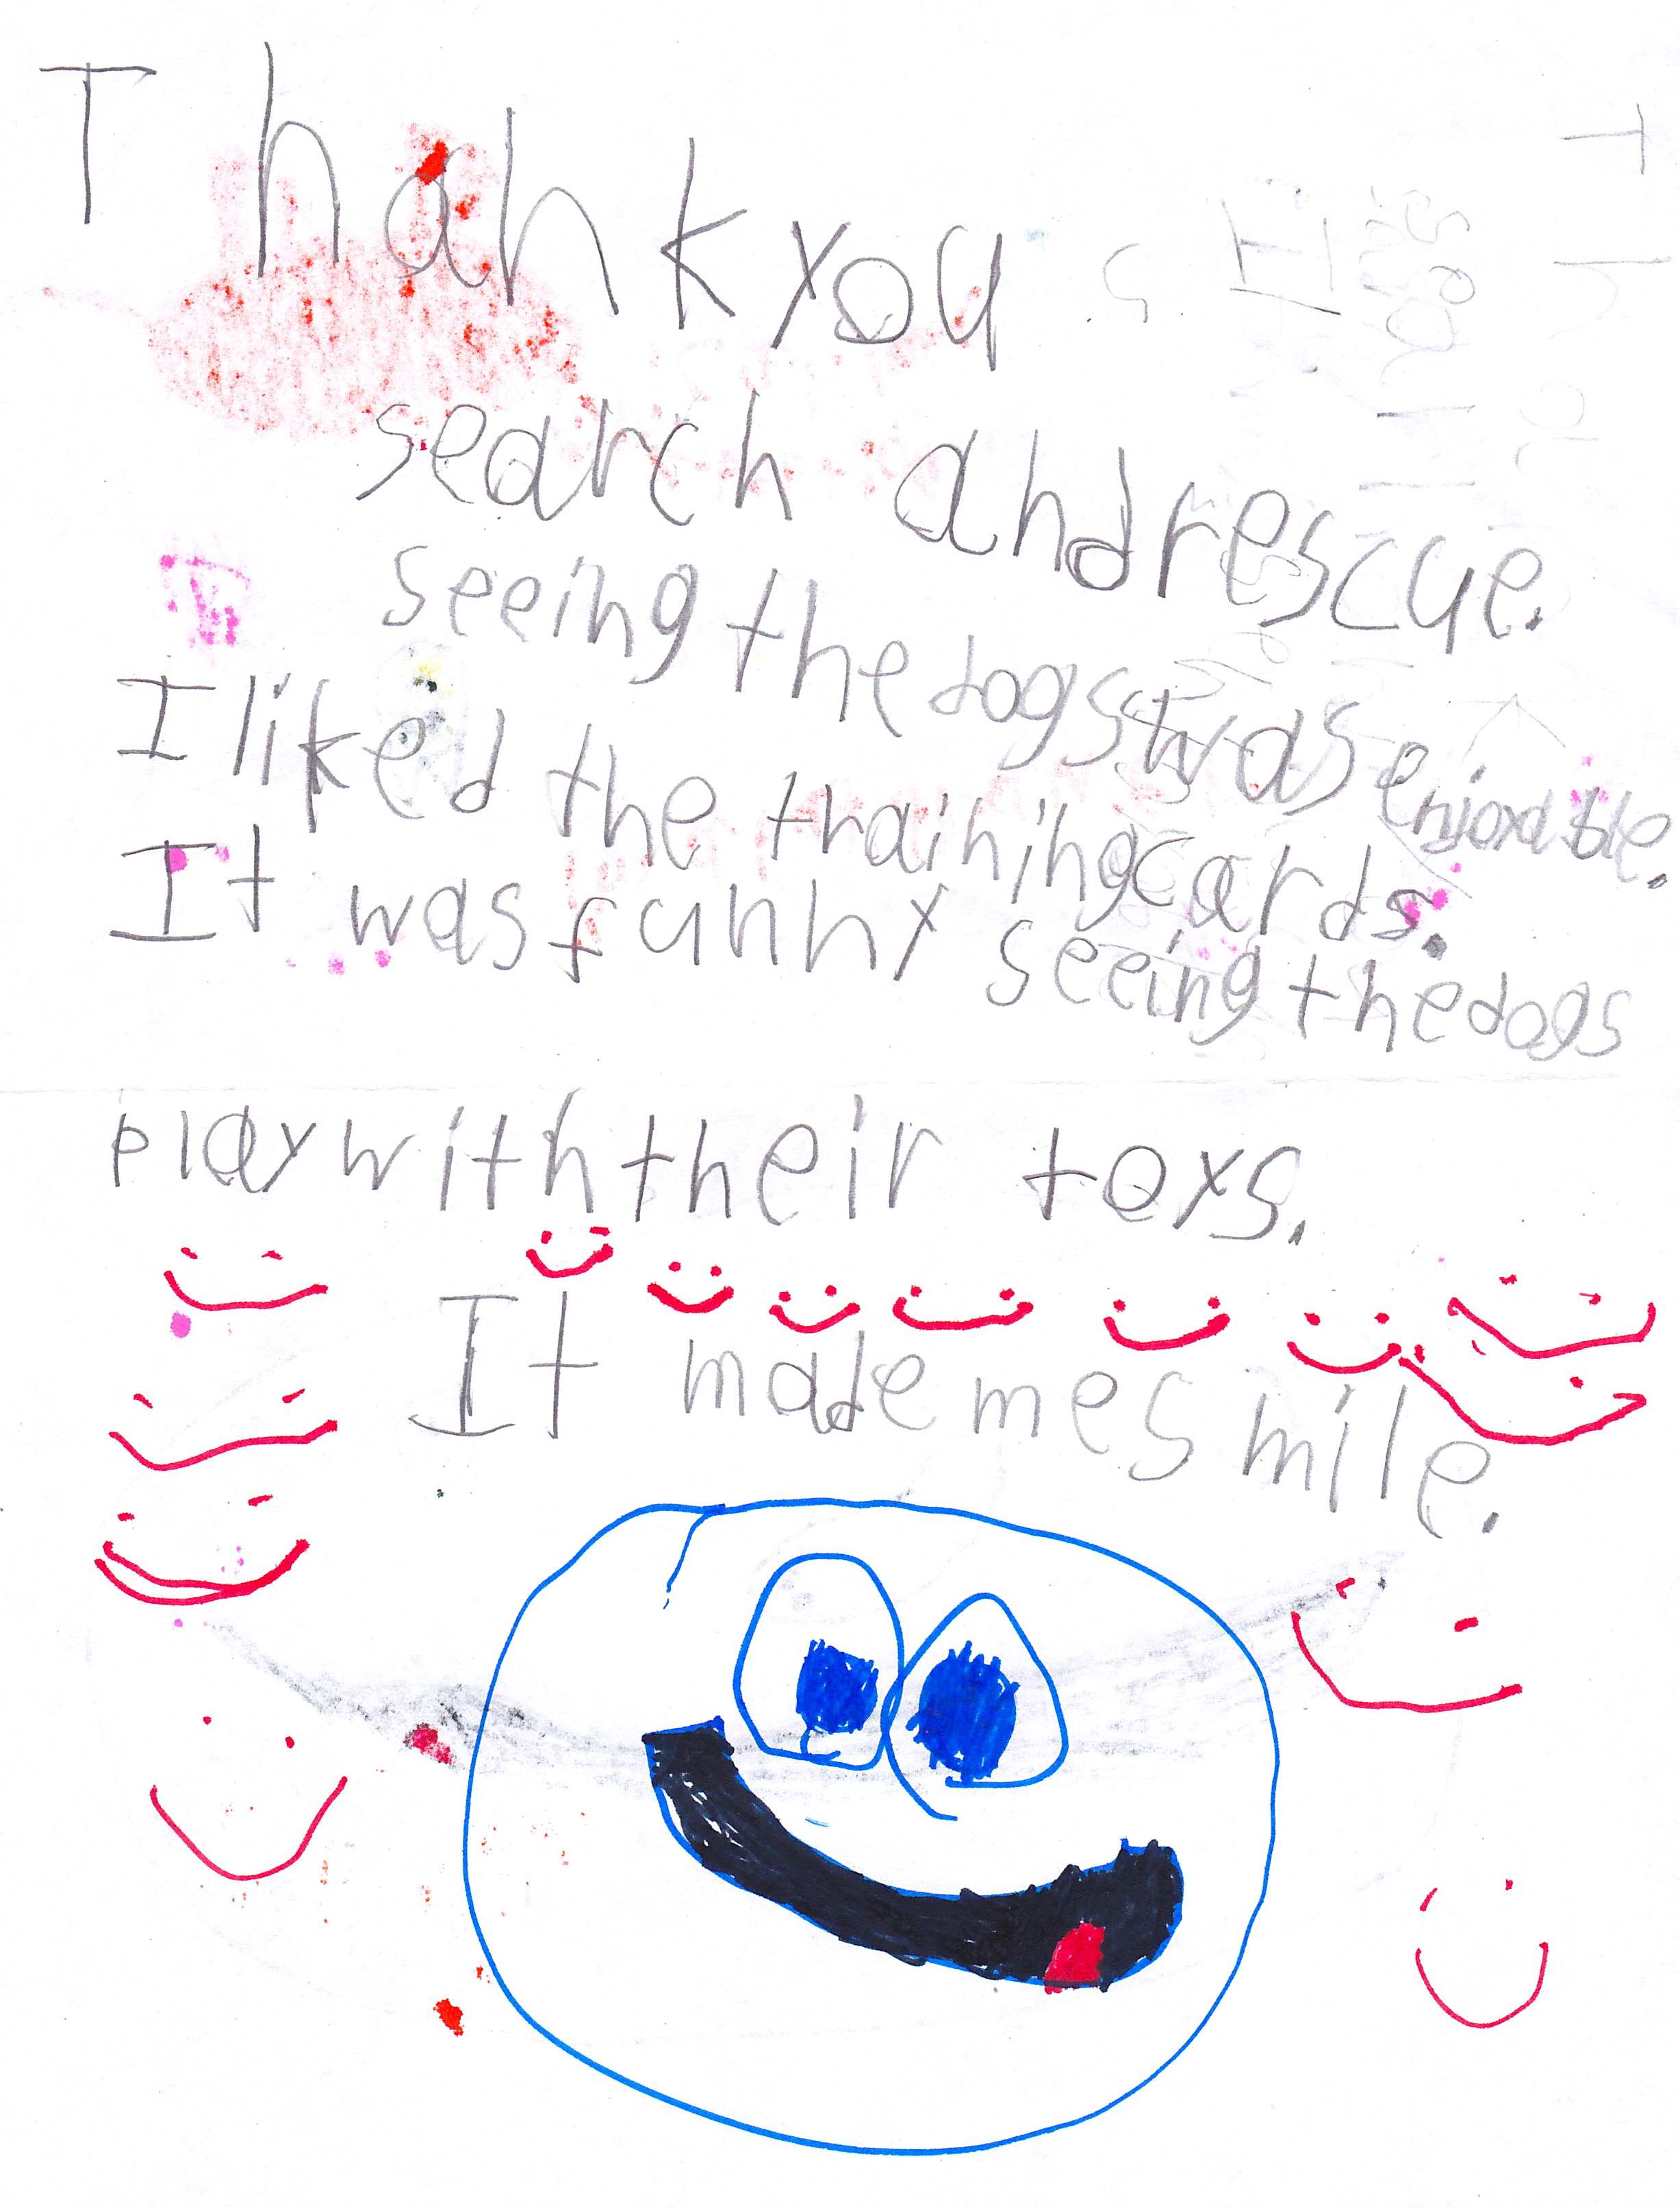 Thank you
search and rescue.
seeing the dogs was enjoyable.
I liked the training cards.
It was funny seeing the dogs
play with their toys.
It made me smile.